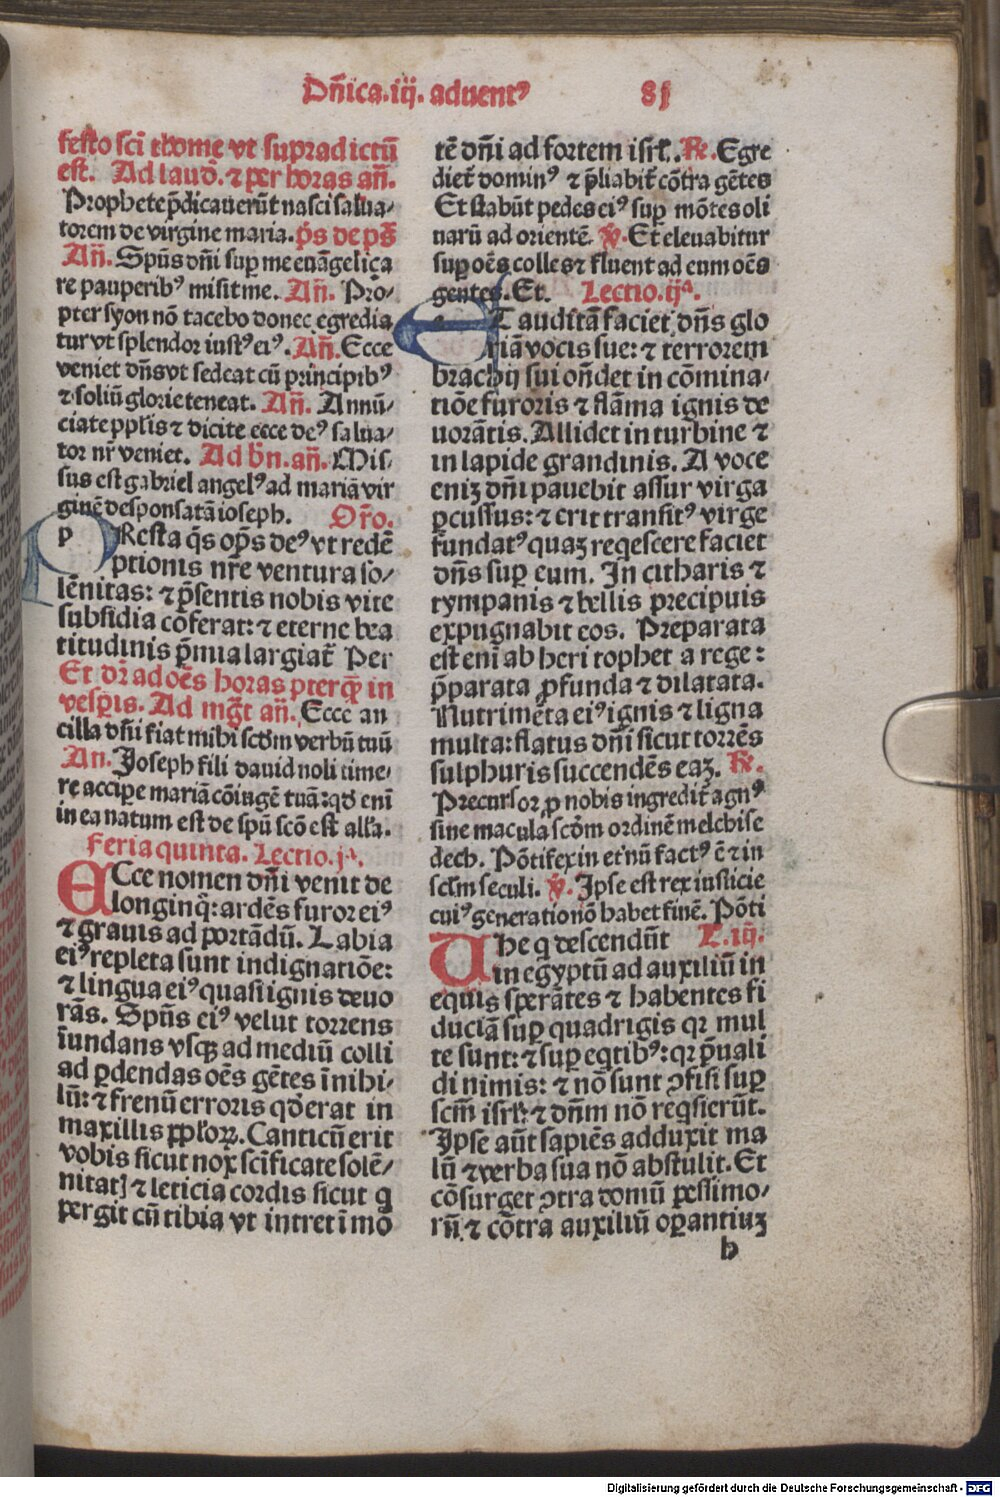 Dn̄ica.iij. aduentꝰ 81
festo sci̅ thome vt supradictū
est. Ad laud̄. ⁊ per horas an̄.
Prophete p̄dicauerūt nasci salua⸗
torem de virgine maria. p̄s de ps̄
An̄. Spūs dn̄i sup me euāgeliça
re pauperibꝰ misit me. An̄. Pro⸗
pter syon nō tacebo donec egredia
tur vt splendor iustꝰ eiꝰ. An̄. Ecce
veniet dn̄s vt sedeat cū principibꝰ
⁊ soliū glorie teneat. An̄. Annū⸗
ciate pp̄lis ⁊ dicite ecce deꝰ salua⸗
tor nr̄ veniet. Ad bn̄. an̄. Mis⸗
sus est gabriel angelꝰ ad mariā vir
ginē desponsatā ioseph. Or̄o.
pResta q̄s op̄s deꝰ vt redē
ptionis nr̄e ventura so⸗
lēnitas: ⁊ p̄sentis nobis vite
subsidia cōferat: ⁊ eterne bea
titudinis p̄mia largiat᷑ Per
Et dr̄ ad oēs horas pterq̄ in
vesp̄is. Ad mgt̄ an̄. Ecce an
cilla dn̄i fiat mihi scd̄m verbū tuū
An. Ioseph fili dauid noli time⸗
re accipe mariā cōiugē tuā: qd̄ eni̅
in ea natum est de spū scō est all'a.
Feria quinta. Lectio.jᵃ.
ECce nomen dn̄i venit de
longinq̄: ardēs furor eiꝰ
⁊ grauis ad portādū. Labia
eiꝰ repleta sunt indignatiōe:
⁊ lingua eiꝰ quasi ignis deuo
rās. Spūs eiꝰ velut torrens
iundans vsqꝫ ad mediū colli
ad ꝑdendas oēs gētes i̅ nihi⸗
lū: ⁊ frenū erroris qd̄ erat in
maxillis pp̄loꝝ. Canticū erit
vobis sicut nox sc̄ificate solē⸗
nitat] ⁊ leticia cordis sicut q
pergit cū tibia vt intret i̅ mō
tē dn̄i ad fortem isrl̄. ℟. Egre
diet᷑ dominꝰ ⁊ p̄liabit᷑ cōtra gētes
Et stabūt pedes eiꝰ sup mōtes oli
uarū ad orientē. ℣. Et eleuabitur
sup oēs colles ⁊ fluent ad eum oēs
gentes. Et. Lectio.ijᵃ.
ET auditā faciet dn̄s glo
riā vocis sue: ⁊ terrorem
brachij sui on̄det in cōmina⸗
tiōe furoris ⁊ flāma ignis de
uorātis. Allidet in turbine ⁊
in lapide grandinis. A voce
eniꝫ dn̄i pauebit assur virga
ꝑcussus: ⁊ erit transitꝰ virge
fundatꝰ quaꝫ reqescere faciet
dn̄s sup eum. In citharis ⁊
tympanis ⁊ bellis precipuis
expugnabit eos. Preparata
est eni̅ ab heri tophet a rege:
p̄parata ꝓfunda ⁊ dilatata.
Nutrimēta eiꝰ ignis ⁊ ligna
multa: flatus dn̄i sicut torrēs
sulphuris succendēs eaꝫ. ℟.
Precursor ꝓ nobis ingredit᷑ agnꝰ
sine macula scd̄m ordinē melchise
dech. Pōtifex in et̉nū factꝰ ē ⁊ in
scl̄m seculi. ℣. Ipse est rex iusticie
cuiꝰ generatio nō habet finē. Pōti
Vhe q descendūt L.iij.
in egyptū ad auxiliū in
equis sperātes ⁊ habentes fi
duciā sup quadrigis qr mul
te sunt: ⁊ sup eqtibꝰ: qr p̄uali
di nimis: ⁊ nō sunt ꝯfisi sup
scm̄ isrl̄: ⁊ dn̄m nō reqsierūt.
Ipse aūt sapiēs adduxit ma
lū ⁊ verba sua nō abstulit. Et
cōsurget ꝯtra domū pessimo⸗
rū ⁊ cōtra auxiliū oꝑantiuꝫ
b
Digitalisierung gefördert durch die Deutsche Forschungsgemeinschaft - DFG